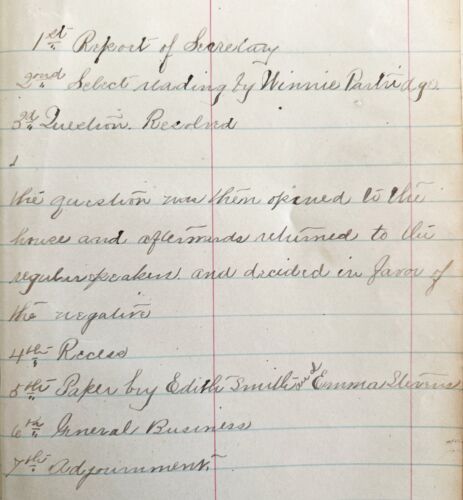 1st Report of Secretary
2ond Select reading by Winnie Partridge.
3d Question. Resolved
the question was then opened to the
house and afterwards returned to the
regular speakers and decided in favor of
the negative
4th Recess
5th Paper by Edith Smith and Emma Stevens
6th General Business
7th Adjournment.